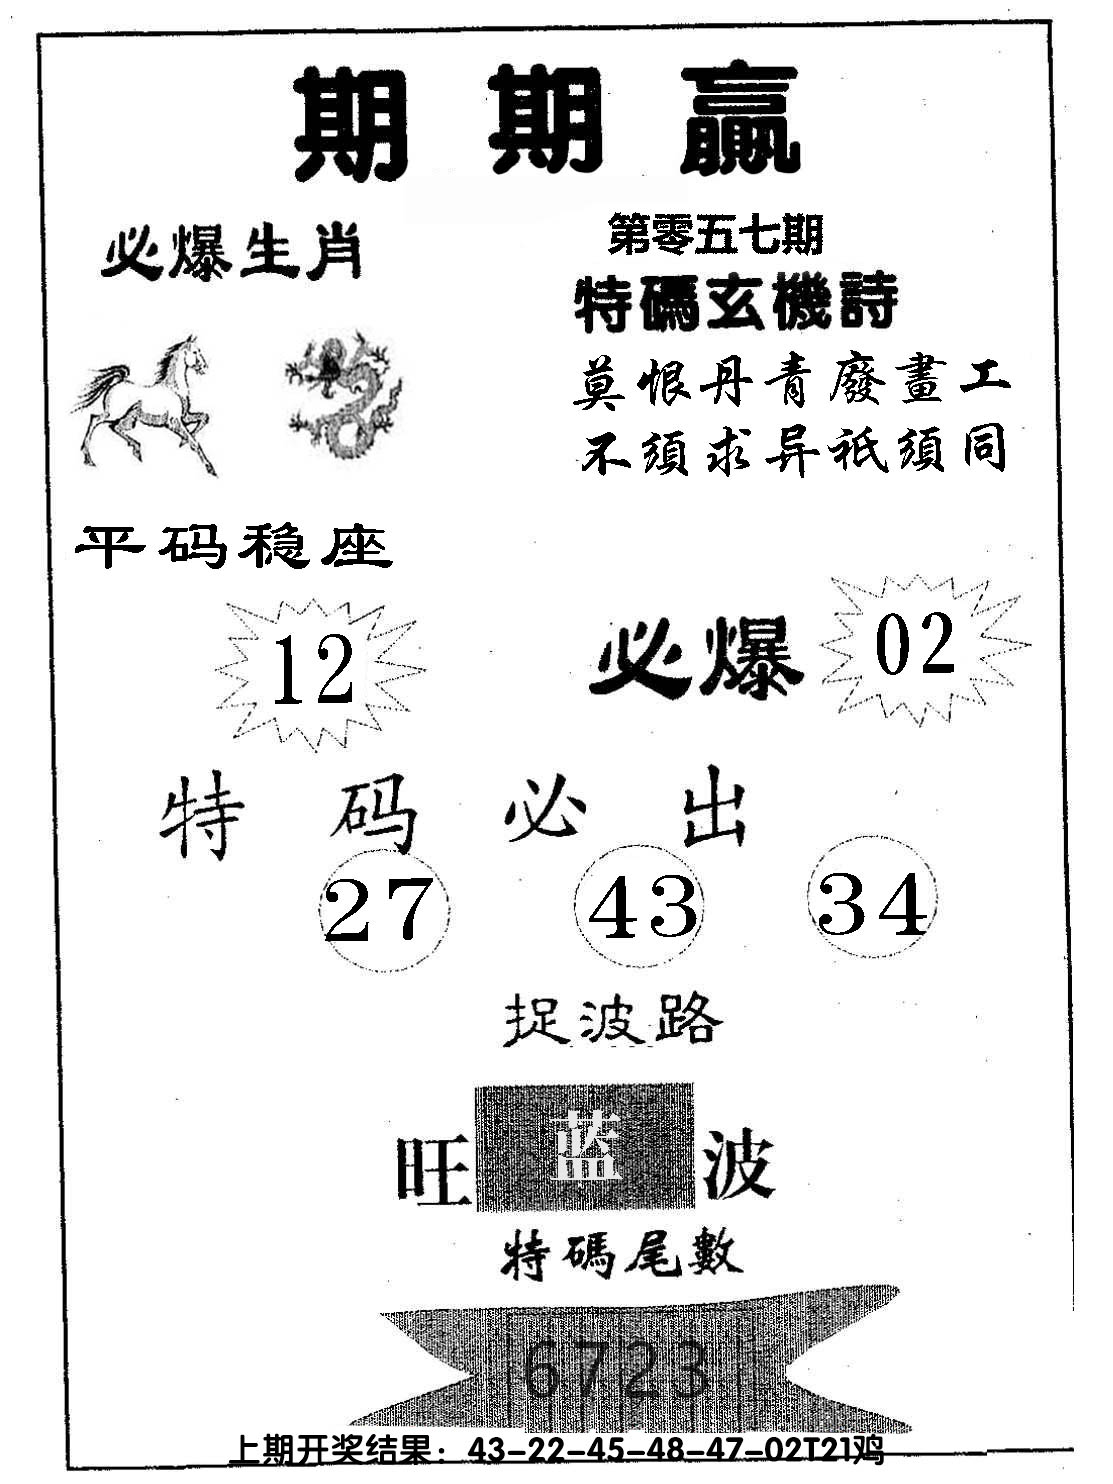 期期赢
必爆生肖
第零五七期
特碼玄機詩
莫恨丹青廢畫工
不須求异祇須同
平码稳座
12
必爆 02
特码必出
27 43 34
捉波路
旺蓝波
特碼尾數
6723
上期开奖结果：43-22-45-48-47-02T21鸡